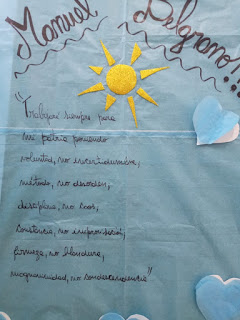 Manuel
Belgrano!!!
"Trabajar siempre para
mi patria poniendo
voluntad, no incertidumbre,
método, no desorden,
disciplina, no caos,
constancia, no improvisación,
firmeza, no blandura,
magnanimidad, no condescendencia"